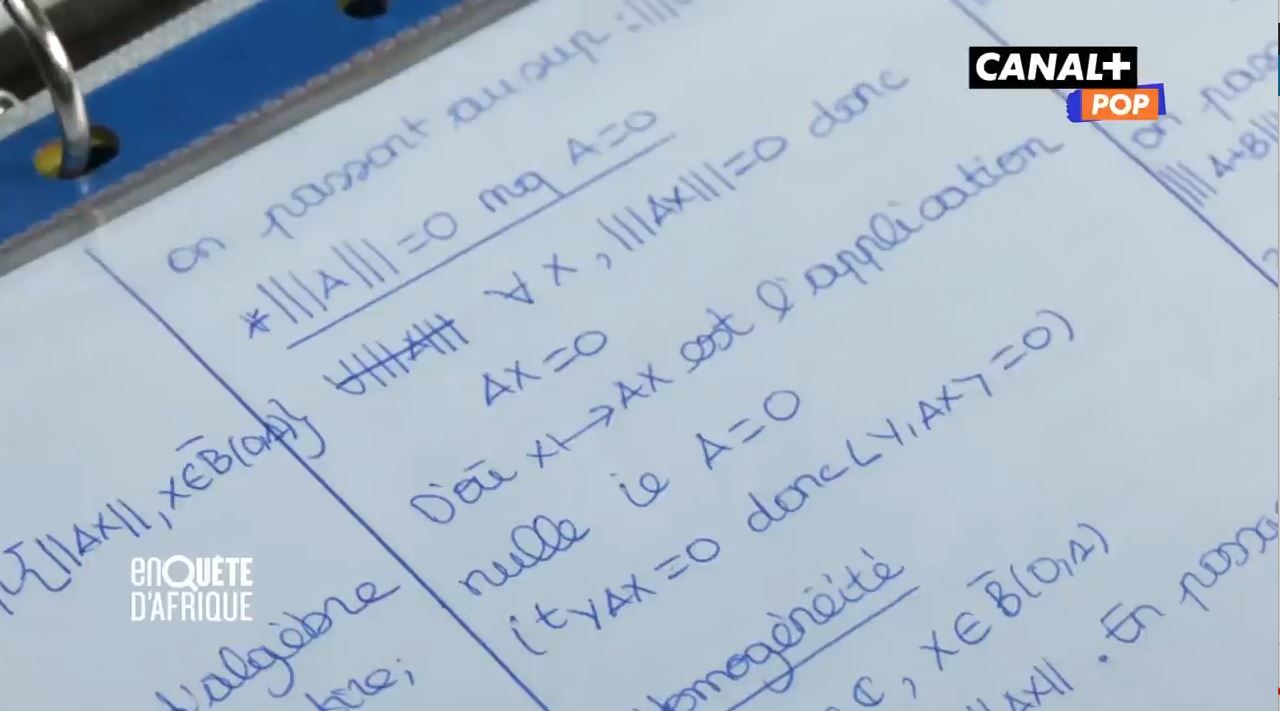 CANAL+
POP
on passant au sup : |||
* |||A||| = 0 mq A=0
∀ X, |||AX||| = 0 donc
AX = 0
D'où X ↦ AX est l'application
nulle ie A = 0
(tYAX = 0 donc <Y, AX> = 0)
homogénéité
C, X ∈ B̄(0,1)
||AX||. En passa
{||AX||, X ∈ B̄(0,1)}
l'algèbre
on pass
|||A+B|||
enQUÊTE
D'AFRIQUE